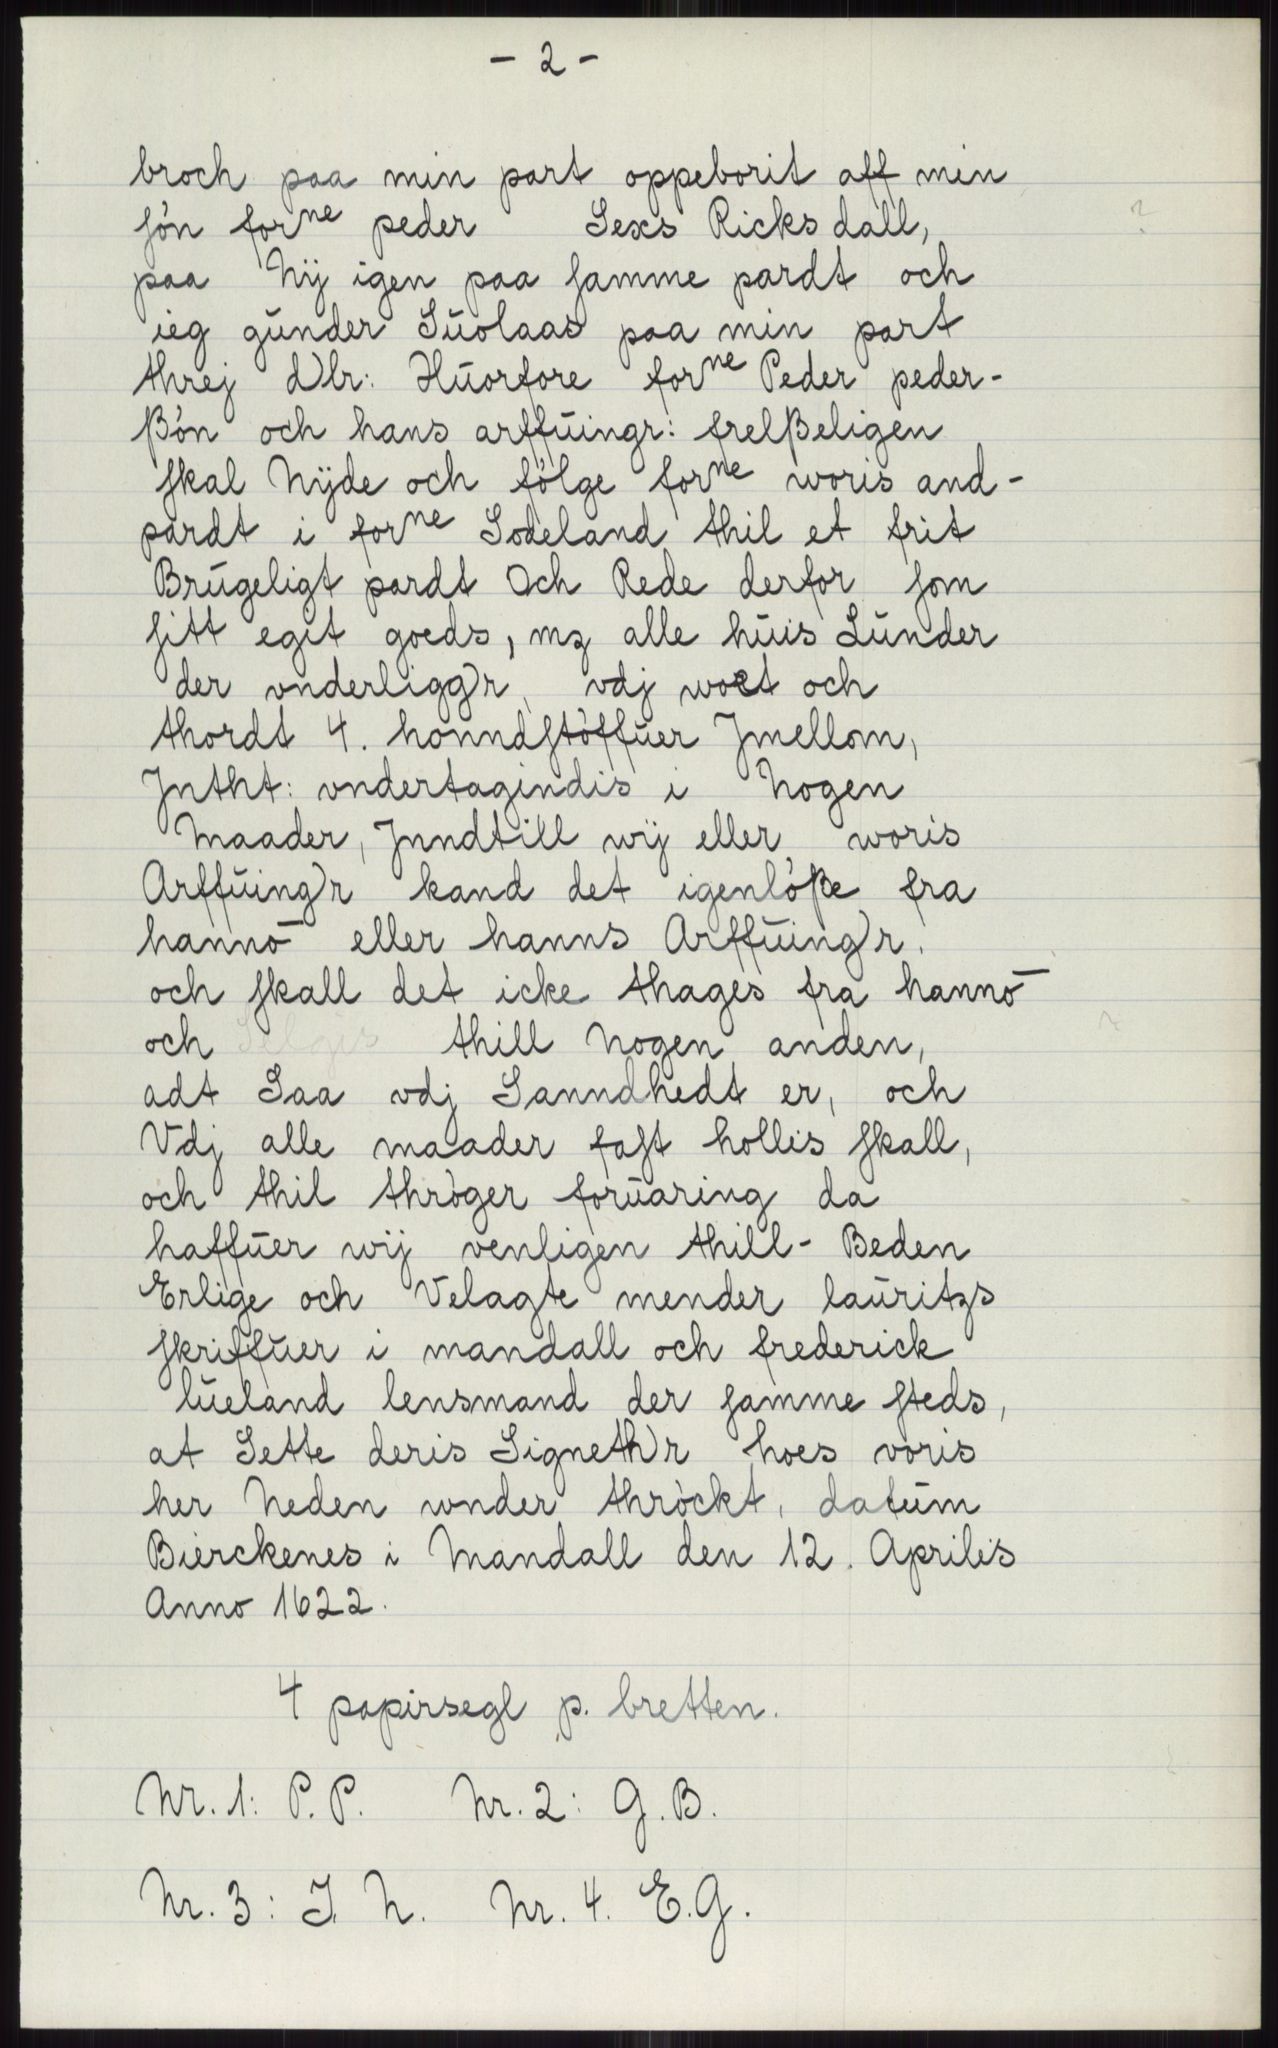 - 2 -
broch paa min part oppeborit aff min
ſón for<sup>ne</sup> peder Sexs Ricksdall, ?
paa Nÿ igen paa ſamme pardt och
ieg gūnder Sūolaas paa min part
threj dlr: Hūorfore for<sup>ne</sup> Peder peder-
ßón och hans arffūingr: frelßeligen
ſkal Nÿde och fólge for<sup>ne</sup> woris and-
pardt i for<sup>ne</sup> Sodeland thil et frit
Brūgeligt pardt Och Rede derfor ſom
ſitt egit goeds, mȝ alle hūis Lūnder
der vnderligg)r, vdj woet och
thordt 4. honndſtòffūer Jmellom,
Jntht: vndertagindis i Nogen
Maader, Jnndtill wÿ eller woris
Arffūing)r kand det igenlóße fra
hannō eller hanns Arffūing)r.
och ſkall det icke thages fra hannō
och Selgis thill Nogen anden, ?
adt Saa vdj Sanndhedt er, och
Vdj alle maader faſt hollis ſkall,
och thil thròger forūaring da
haffūer wÿ venligen thill- Beden
Erlige och Velagte mender laūritzs
ſkriffūer i mandall och frederick
lūeland lensmand der ſamme ſteds,
at Sette deris Signeth)r hoes voris
her Neden wnder thròckt, datūm
Bierckenes i Mandall den 12. Aprilis
Anno 1622.
4 papirsegl p. bretten.
Nr. 1: P. P. Nr. 2: G. B.
Nr. 3: J. N. Nr. 4. E. G.